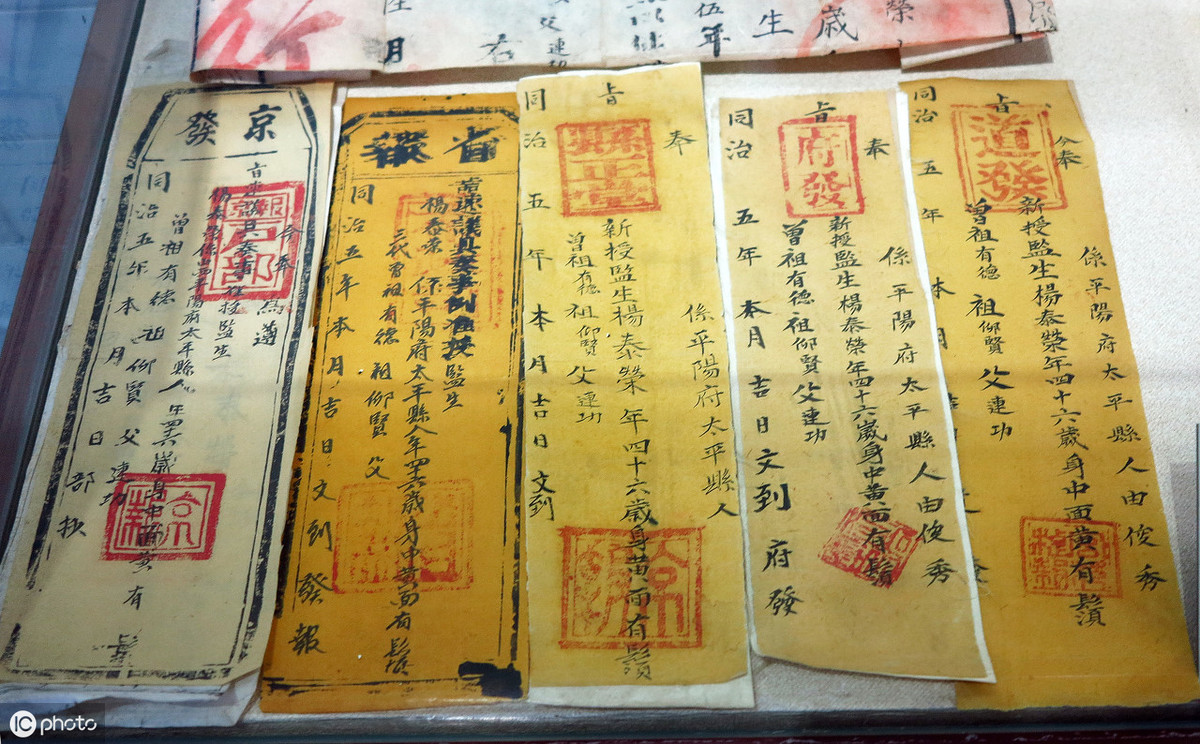 榮
歲
生
伍年
父連
月
分奉
旨
道發
係平陽府太平縣人由俊秀
新授監生楊泰榮年四十六歲身中面黃有鬚
曾祖有德祖仰賢父連功
同治五年本月
奉
旨
府發
係平陽府太平縣人由俊秀
新授監生楊泰榮年四十六歲身中黃面有鬚
曾祖有德祖仰賢父連功
同治五年本月吉日文到府發
奉
旨
縣正堂
係平陽府太平縣人
新授監生楊泰榮年四十六歲身黃面有鬚
曾祖有德祖仰賢父連功
同治五年本月吉日文到
省報
議具奏事例准授監生
楊泰榮係平陽府太平縣人年四六歲身中黃面有鬚
三代曾祖有德祖仰賢父
同治五年本月吉日文到發報
京發
今奉為遵
旨速議具奏事准授監生
楊泰榮係平陽府太平縣人年四六歲身中面黃有鬚
曾祖有德祖仰賢父連功
同治五年本月吉日部
IC photo